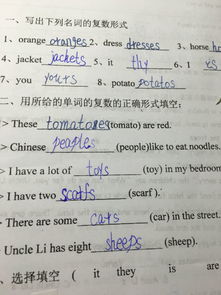 一、写出下列名词的复数形式
1、orange oranges 2、dress dresses 3、horse
4、jacket jackets 5、it thy 6、I
7、you yours 8、potato potatos
二、用所给的单词的复数的正确形式填空:
> These tomatoes (tomato) are red.
> Chinese peoples (people)like to eat noodles.
> I have a lot of toys (toy) in my bedroom
> I have two scarfs (scarf ).
> There are some cars (car) in the street.
> Uncle Li has eight sheeps (sheep).
、选择填空 ( it they is are